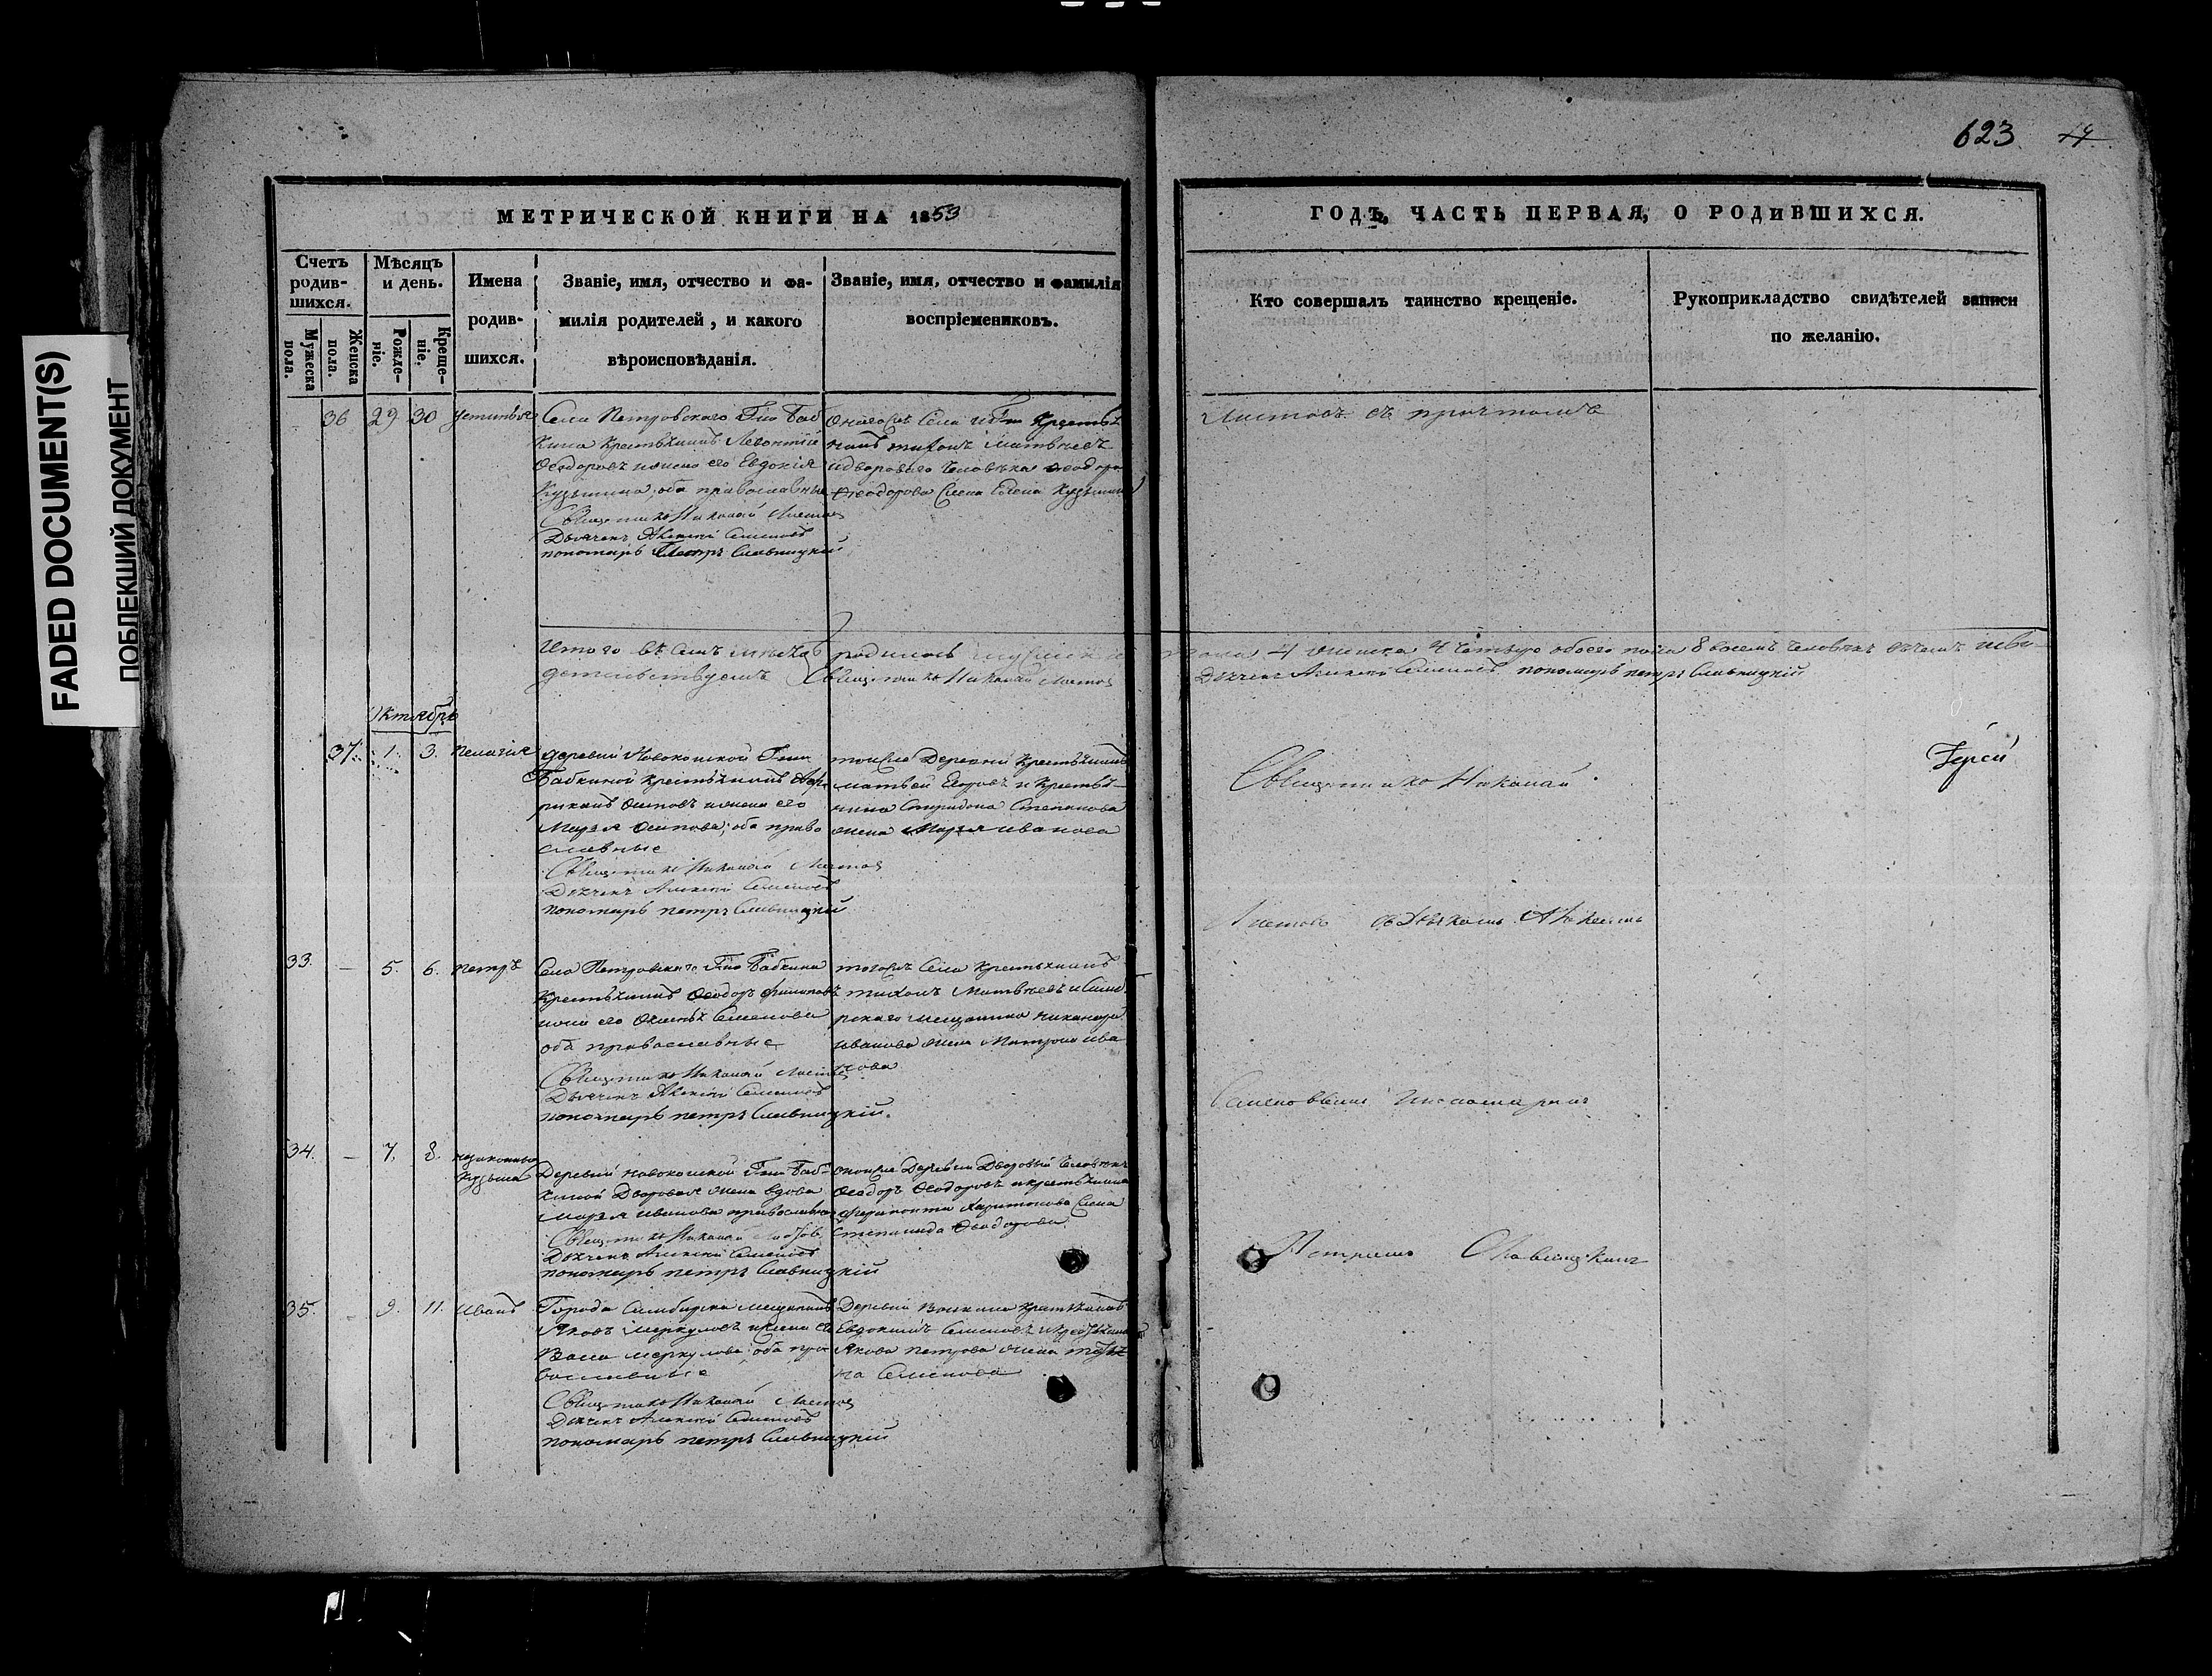 FADED DOCUMENT(S)
ПОБЛЕКШИЙ ДОКУМЕНТ
623. 19
МЕТРИЧЕСКОЙ КНИГИ НА 1853
ГОДЪ, ЧАСТЬ ПЕРВАЯ, О РОДИВШИХСЯ.
Счетъ родив-шихся.
Мужеска пола.
Женска пола.
Мѣсяцъ и день.
Рожде-ніе.
Креще-ніе.
Имена родив-шихся.
Званіе, имя, отчество и фа-
милія родителей, и какого
вѣроисповѣданія.
Званіе, имя, отчество и фамилія
воспріемниковъ.
Кто совершалъ таинство крещеніе.
Рукоприкладство свидѣтелей записи
по желанію.
36 29 30 Устинья
Села Петровскаго Гпо Баб
кина Крестьянинъ Леонтій
Ѳеодоровъ и жена его Евдокія
Кузьмина, оба православные
Священникъ Николай Листов
Дьячекъ Алексій Семеновъ
пономарь Петръ Славницкій
Онагожъ Села Крестья
нинъ тихонъ Матвѣевъ
и двороваго человѣка Ѳеодора
Ѳеодорова жена Елена Кузьмина
Листовъ съ причтомъ
Итого въ семъ мѣсяцѣ родилось мужеска пола 4 женска 4 четыре обоего пола 8 восемъ человѣкъ въ чемъ и сви-
детельствуемъ Священникъ Николай Листов Дьячекъ Алексій Семеновъ пономарь петръ Славницкій
Октябрь
37. 1. 3. Пелагія
Деревни Гжи
Бабкиной Крестьянинъ
Осиповъ и жена его
Марья Осипова, оба право
славные
Священникъ Николай Листов
Дьячекъ Алексій Семеновъ
пономарь петръ Славницкій
тойже Деревни Крестьянинъ
матвей Егоровъ и Крестья-
нина Спиридона Степанова
жена Марья иванова
Священникъ Николай
Іерей
Листовъ съ Дьячкомъ Алексіемъ
33. – 5. 6. петръ
Села Петровскаго Гпо Бабкина
Крестьянинъ Ѳеодоръ Филиповъ
жена его Семенова
оба православные
Священникъ Николай Листов
Дьячекъ Алексій Семеновъ
пономарь петръ Славницкій.
тогожъ Села Крестьянинъ
тихонъ Матвѣевъ и Симб
рскаго мещанина никанора
иванова жена Матрона ива
нова
Семеновымъ и пономаремъ
34. – 7. 8. незаконно Кузьма
Деревни Гжи Баб-
киной Дворовая жена вдова
Марья иванова православная
Священникъ Николай Листов
Дьячекъ Алексій Семеновъ
пономарь петръ Славницкій
онойже Деревни Дворовый человѣкъ
Ѳеодоръ Ѳеодоровъ и крестьянина
Ферапонта Харитонова жена
Степанида Ѳеодорова
Петромъ Славницкимъ
35. – 9. 11. иванъ
Города Симбирска мещанинъ
Яковъ меркуловъ и жена его
меркулова, оба пра
вославные
Священникъ Николай Листов
Дьячекъ Алексій Семеновъ
пономарь петръ Славницкій
Деревни Крестьянинъ
Евдокимъ Семеновъ и крестьянина
Якова петрова жена татья
на Семенова